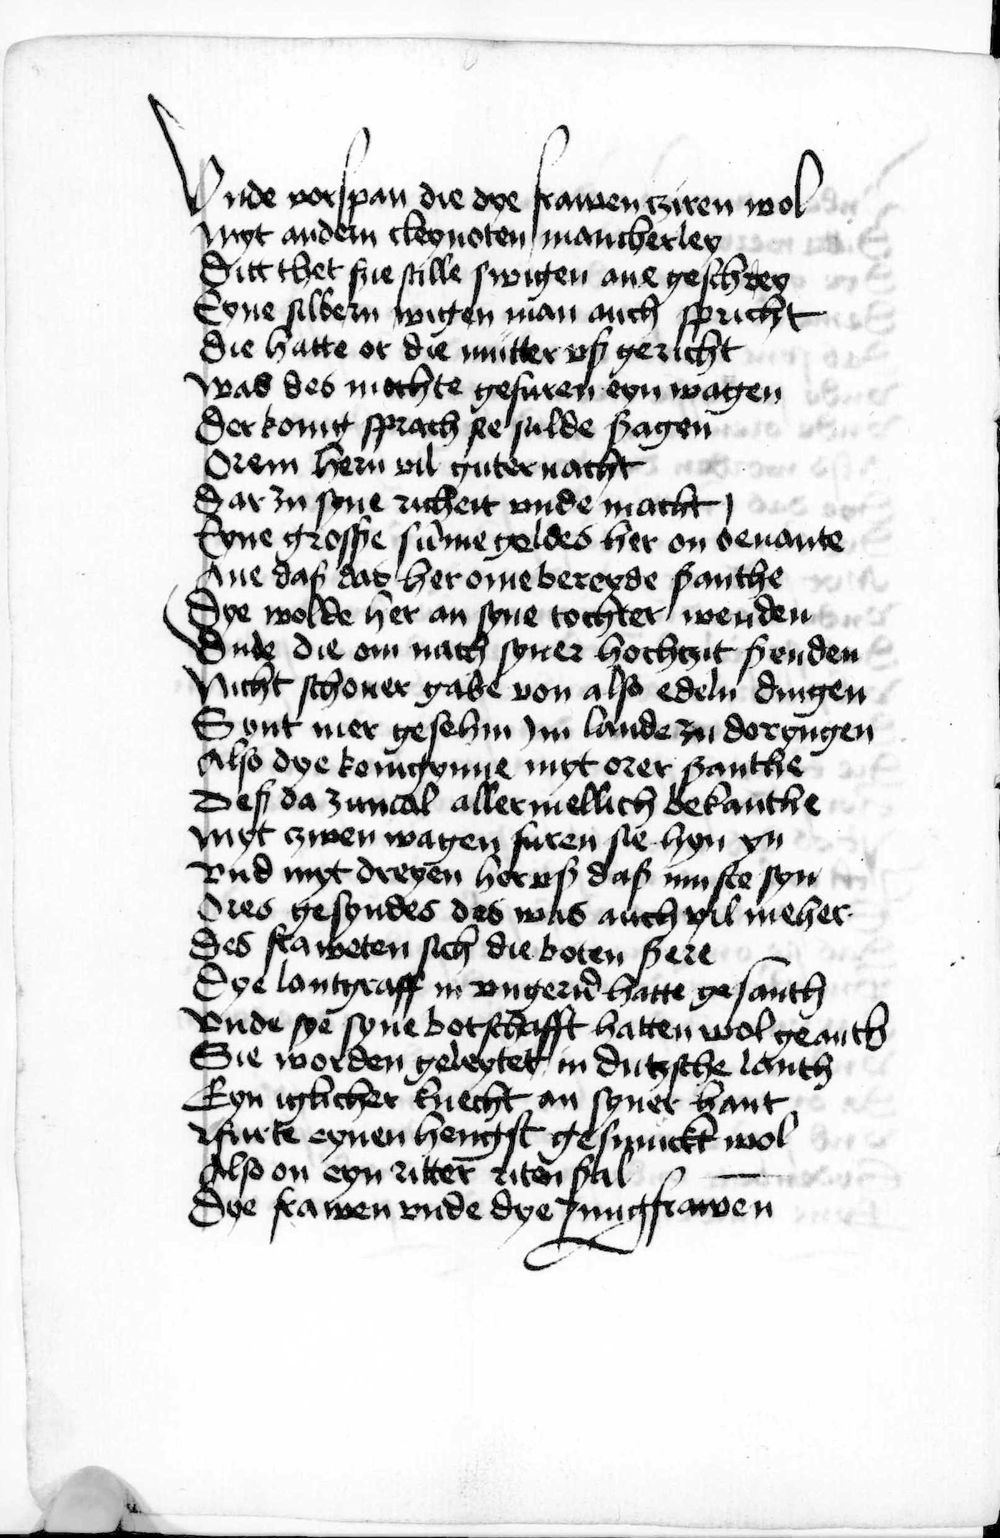 Vnde vorspan die dye frawen cziren wol
Myt andern cleynoten mancherley
Ditt thet sue stille swigen ane geschrey
Eyne silbern wigen man auch spricht
Die hatte or die mutter vß gericht
Was des mochte gefuren eyn wagen
Der konig sprach sie sulde ßagen
Orem hern vil guter nacht
Dar zu syne richeit vnde macht
Eyne grosße sume geldes her on benante
Ane daß das her ome bereyde ßanthe
Dye wolde her an syne tochter wenden
Vnde die om nach syner hochczit ßenden
Nicht schoner gabe von also edeln dingen
Synt mer gesehin im lande zu doryngen
Also dye konigynne myt orer ßanthe
Deß da zumal allermellich bekanthe
Myt czwen wagen furen sie hyn yn
Vnd myt dreyen her vß daß muste syn
Ores gesyndes des was auch vil meher
Des fraweten sich die boten ßere
Dye lantgraff in vngern hatte gesanth
Vnde sye syne botschafft hatten wol geanth
Sie worden geleytet in dutzsche lanth
Eyn iglicher knecht an syner hant
Furte eynen hengst gesmuckt wol
Also on eyn ritter riten ßal
Dye frawen vnde dye Jungfrawen